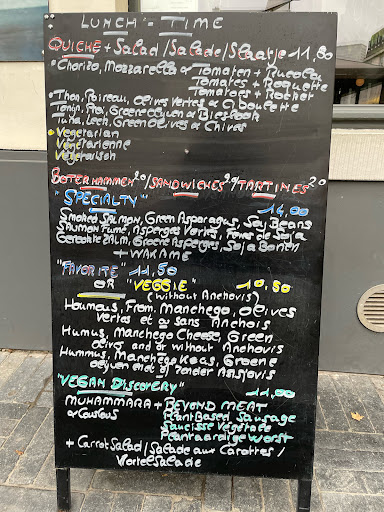 LUNCH - TIME
QUICHE + Salad / Salade / Slaatje 11,80
• Chorizo, Mozzarella & Tomaten + Rucola
Tomates + Roquette
Tomatos + Rocket
• Thon, Poireau, olives vertes & Ciboulette
Tonijn, Prei, Groene olijven & Bieslook
Tuna, Leek, Green Olives & Chives
• Vegetarian
Végétarienne
Vegetarisch
BOTERHAMMEN 20 / SANDWICHES 20 / TARTINES 20
"SPECIALTY" 14,00
Smoked Salmon, Green Asparagus, Soy Beans
Saumon Fumé, Asperges Vertes, Fèves de Soja
Gerookte Zalm, Groene Asperges, Soja Bonen
+ WAKAME
"FAVORITE" 11,50
OR "VEGGIE" 10,50
(without Anchovis)
Houmous, From. Manchego, olives
vertes et ou sans Anchois
Humus, Manchego Cheese, Green
olives and or without Anchovis
Hummus, Manchego Kaas, Groene
olijven en of zonder Ansjovis
"VEGAN DISCOVERY" 11,00
MUHAMMARA + BEYOND MEAT
& Couscous Plant Based Sausage
Saucisse Végétale
Plantaardige Worst
+ Carrot Salad / Salade aux Carottes /
Wortelsalade